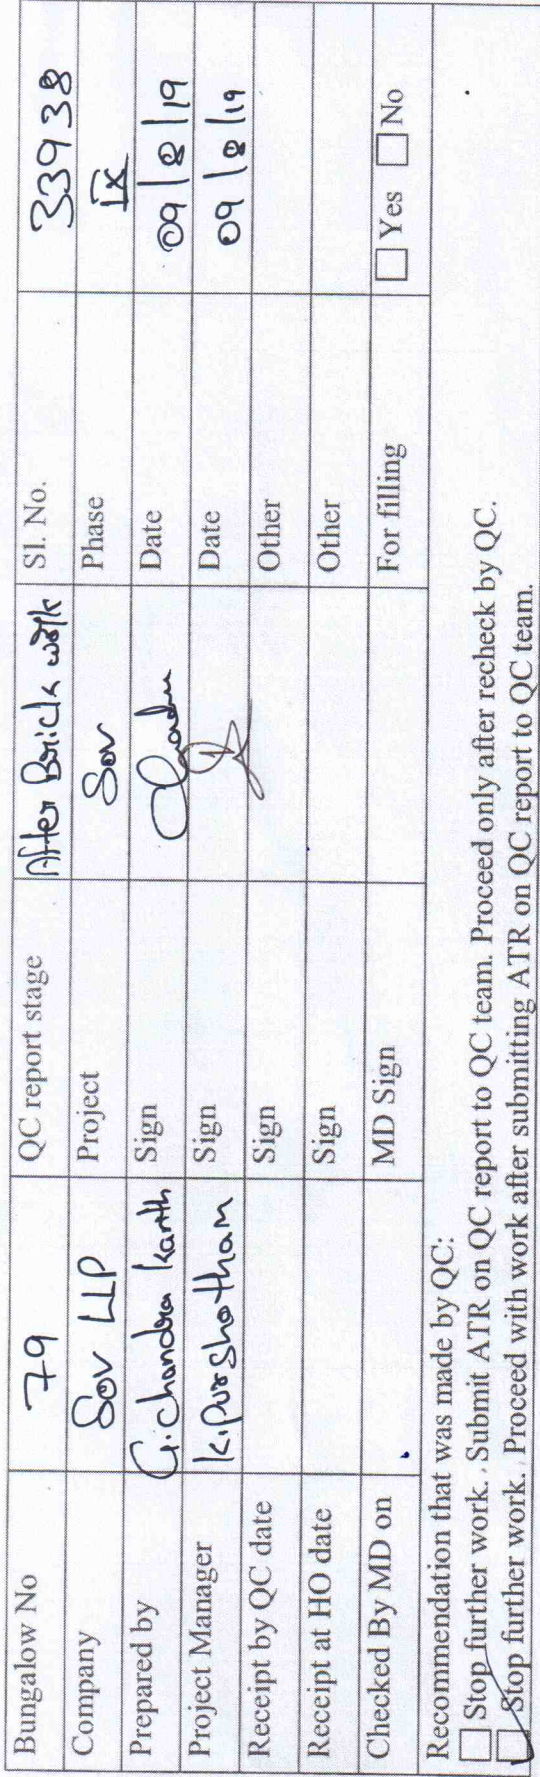 Bungalow No 79 QC report stage After Brick work Sl. No. 33938
Company Sov LLP Project Sov Phase IX
Prepared by G. Chandra Kanth Sign Date 09/8/19
Project Manager K. Purshotham Sign Date 09/8/19
Receipt by QC date Sign Other
Receipt at HO date Sign Other
Checked By MD on MD Sign For filling ☐ Yes ☐ No
Recommendation that was made by QC:
☐ Stop further work. Submit ATR on QC report to QC team. Proceed only after recheck by QC.
☑ Stop further work. Proceed with work after submitting ATR on QC report to QC team.